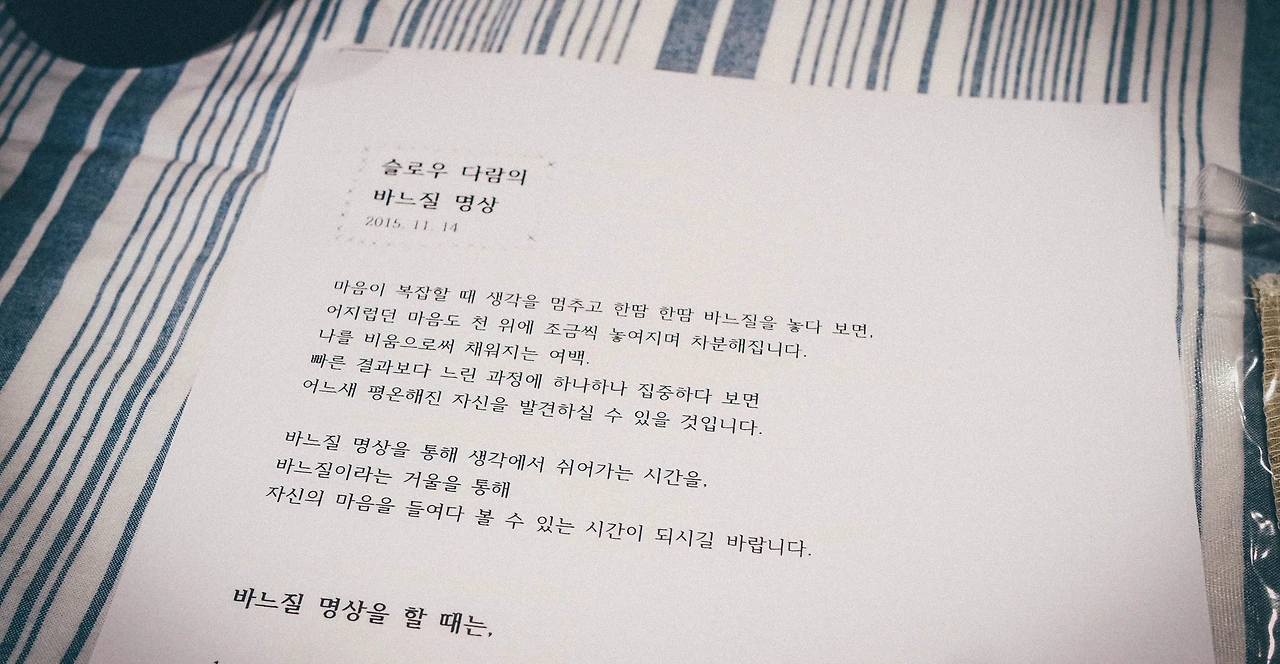 슬로우 다람의
바느질 명상
2015. 11. 14
마음이 복잡할 때 생각을 멈추고 한땀 한땀 바느질을 놓다 보면,
어지럽던 마음도 천 위에 조금씩 놓여지며 차분해집니다.
나를 비움으로써 채워지는 여백.
빠른 결과보다 느린 과정에 하나하나 집중하다 보면
어느새 평온해진 자신을 발견하실 수 있을 것입니다.
바느질 명상을 통해 생각에서 쉬어가는 시간을,
바느질이라는 거울을 통해
자신의 마음을 들여다 볼 수 있는 시간이 되시길 바랍니다.
바느질 명상을 할 때는,